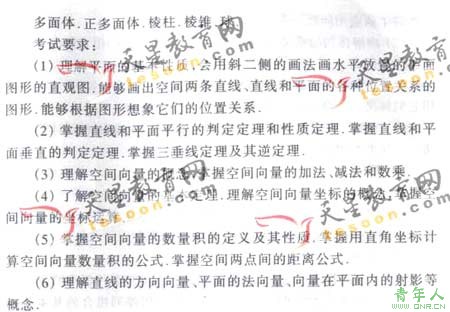 多面体.正多面体.棱柱.棱锥.球.
考试要求:
(1)理解平面的基本性质,会用斜二侧的画法画水平放置的平面
图形的直观图.能够画出空间两条直线、直线和平面的各种位置关系的
图形.能够根据图形想象它们的位置关系.
(2)掌握直线和平面平行的判定定理和性质定理.掌握直线和平
面垂直的判定定理.掌握三垂线定理及其逆定理.
(3)理解空间向量的概念,掌握空间向量的加法、减法和数乘.
(4)了解空间向量的基本定理.理解空间向量坐标的概念,掌握空
间向量的坐标运算.
(5)掌握空间向量的数量积的定义及其性质.掌握用直角坐标计
算空间向量数量积的公式.掌握空间两点间的距离公式.
(6)理解直线的方向向量、平面的法向量、向量在平面内的射影等
概念.
天星教育网
tesoon.com
天星教育网
tesoon.com
天星教育网
tesoon.com
天星教育网
tesoon.com
青年人
www.QNR.CN